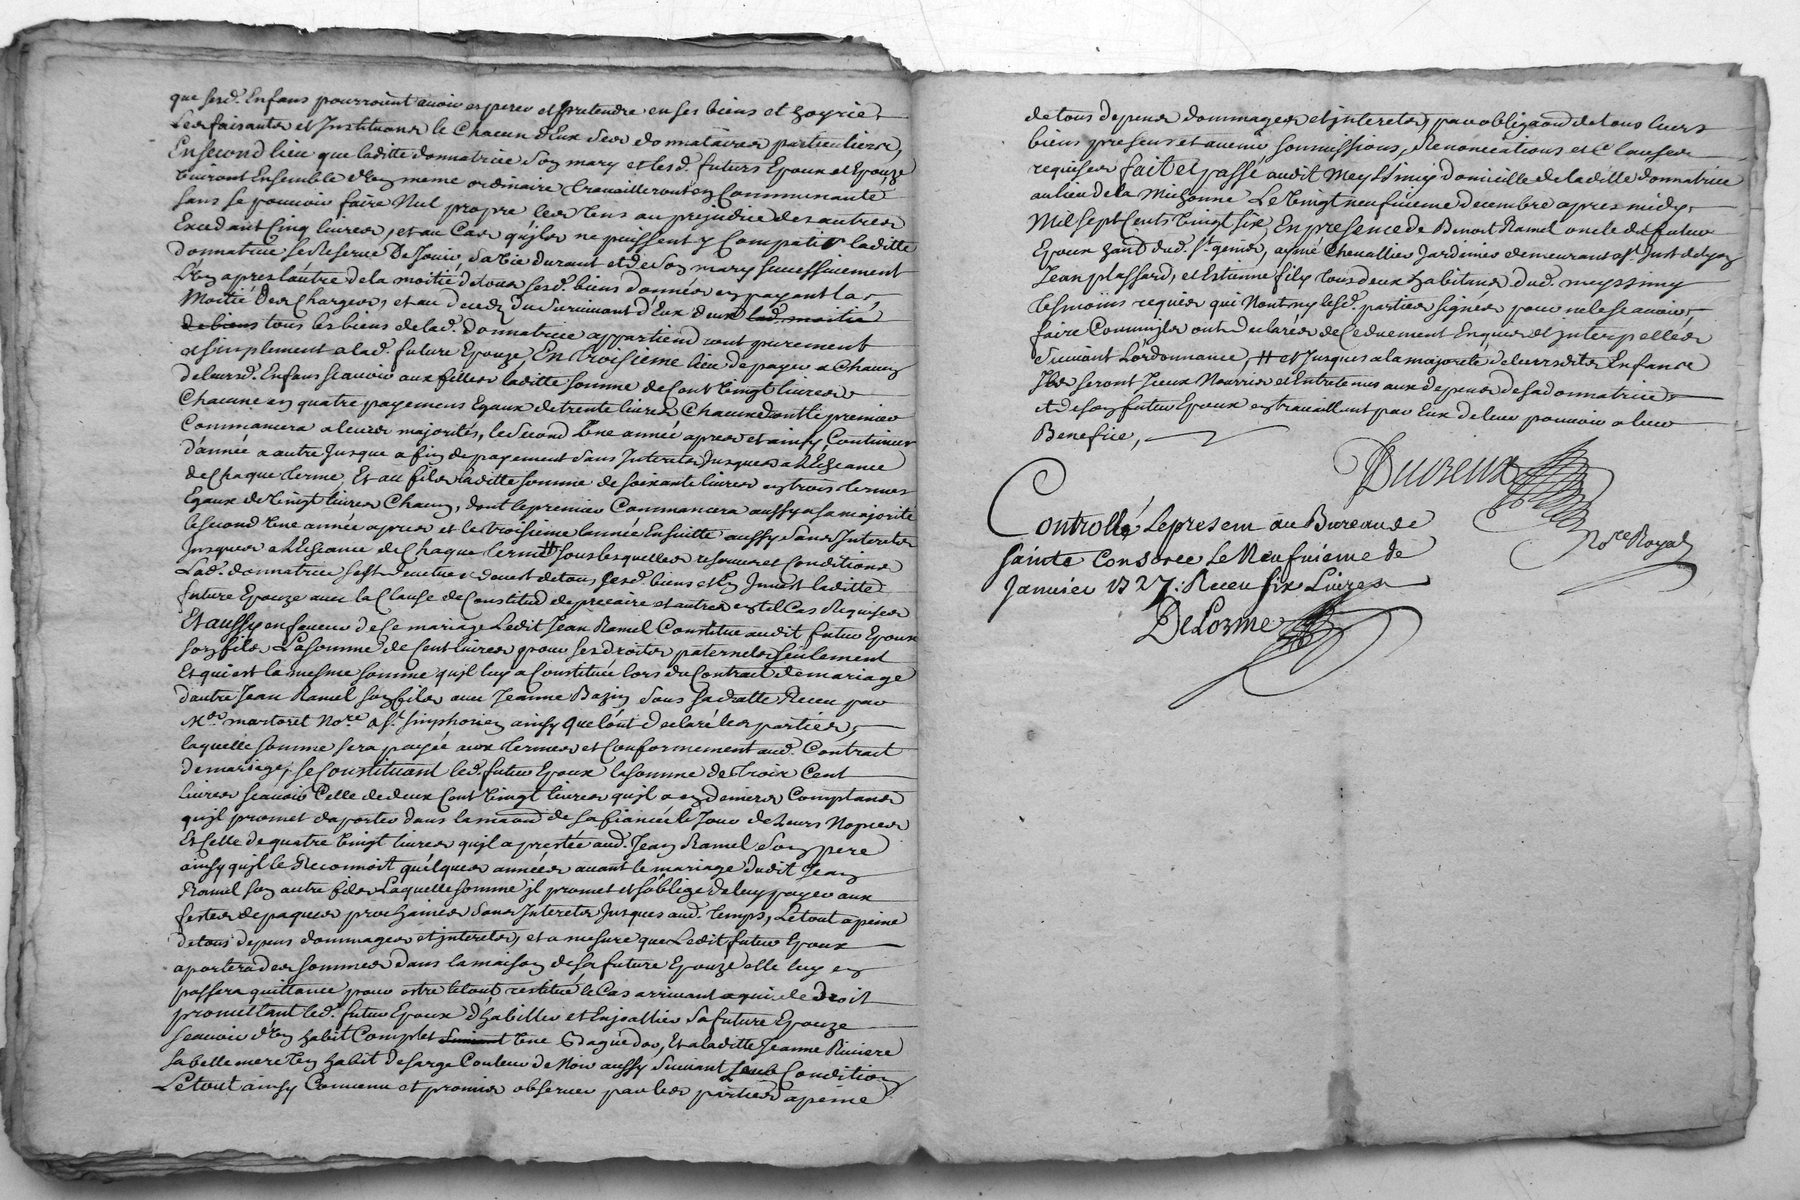 que sesd. Enfans pourroint avoir esperer et pretendre en ses biens et hoyrie
Les faisants et Instituans le Chacun d'Eux ses donnataires particuliers,
En second lieu que laditte donnatrice son mary et lesd. futurs Epoux et Epouze
vivront Ensemble d'un meme ordinaire travailleront en Communauté
sans se pouvoir faire Nul propre les uns au prejudice des autres
Excedant Cinq livres, et au Cas qu'ils ne puissent y Compatir laditte
donnatrice se Reserve De Jouir sa vie durant et de son mary successivement
L'un apres l'autre de la moitié de tous sesd. biens donnés en payant la
Moitié des Charges, et au deceds du survivant d'Eux deux lad. moitié
de biens tous les biens de lad. donnatrice appartiendront purement
et simplement a lad. future Epouze, En troisieme lieu de payer a Chacun
de leursd. Enfans scavoir aux filles laditte somme de Cent vingt livres
Chacune en quatre payemens Egaux de trente livres Chacun dont le premier
Commancera a leurs majorités, le second Une année apres et ainsy Continuer
d'année a autre Jusque a fin de payement sans Interets Jusques a l'Echeance
de Chaque terme, Et au fils laditte somme de soixante livres en trois termes
Egaux de vingt livres Chacun, dont le premier Commancera aussy a sa majorité
le second Une année apres et le troisieme l'année Ensuitte aussy sans Interets
Jusques a l'Echeance de Chaque terme # sous lesquelles reserves et Conditions
Lad. donnatrice s'est demetue et devest de tous sesd. biens et En Invest laditte
future Epouze avec la Clause de Constitud de precaire et autres en tel Cas Requises
Et aussy en faveur de Ce mariage Ledit Jean Ramel Constitue audit futur Epoux
son fils La somme de Cent livres pour ses droits paternels seulement
Et qui est la mesme somme qu'il luy a Constituée lors du Contract de mariage
d'autre Jean Ramel son fils avec Jeanne Bazin sous sa datte Receu par
Me. martoret Nore. a St. simphorien ainsy que l'ont declaré les parties,
laquelle somme sera payée aux termes et Conformement aud. Contract
de mariage, se Constituant led. futur Epoux la somme de trois Cent
livres scavoir Celle de deux Cent vingt livres qu'il a en deniers Comptans
qu'il promet d'aporter dans la maison de sa fiancée le Jour de leurs Nopces
Et Celle de quatre vingt livres qu'il a prestée aud. Jean Ramel son pere
ainsy qu'il le Reconnoit quelques années avant le mariage dudit Jean
Ramel son autre fils Laquelle somme il promet et s'oblige de luy payer aux
festes de paques prochaines sans Interets Jusques aud. temps, Le tout a peine
de tous depens dommages et interets, et a mesure que Ledit futur Epoux
aportera des sommes dans la maison de sa future Epouze elle luy en
passera quittance pour estre le tout restitué le Cas arrivant a qui de Droit
promettant led. futur Epoux d'habiller et Enjoallier sa future Epouze
scavoir d'un habit Complet suivant Une Bague d'or, Et a laditte Jeanne Riviere
sa belle mere Un habit de sarge Couleur de Noir aussy suivant sa Condition
Le tout ainsy Convenu et promis observer par les parties a peine
de tous depens dommages et interets, par obligaon. de tous leurs
biens presens et avenir soumissions, Renonciations et Clauses
requises fait et passé audit Meyssimy domicille de laditte donnatrice
au lieu de la Michonne Le Vingt neufvieme decembre apres midy
Mil sept Cents Vingt six, En presence de Benoit Ramel oncle du futur
Epoux dud. St. genis, aymé Chevallier Jardinier demeurant a St. Just de Lyon
Jean plassard, et Estienne fily tous deux habitans dud. meyssimy
tesmoins requis qui N'ont ny lesd. parties signés pour ne le scavoir
faire Comm'ils ont declarés de Ce duement Enquis et Interpellés
suivant L'ordonnance, # et Jusques a la majorité de leursdits Enfans
Ils seront Iceux Nourris et Entretenus aux depens de sa donnatrice
et de son futur Epoux en travaillant par Eux de leur pouvoir a leur
Benefice,
Dubreux
Nore. Royal
Controllé Le present au Bureau de
Sainte Consorce Le Neufvieme de
Janvier 1727. Receu six Livres
DeLorme